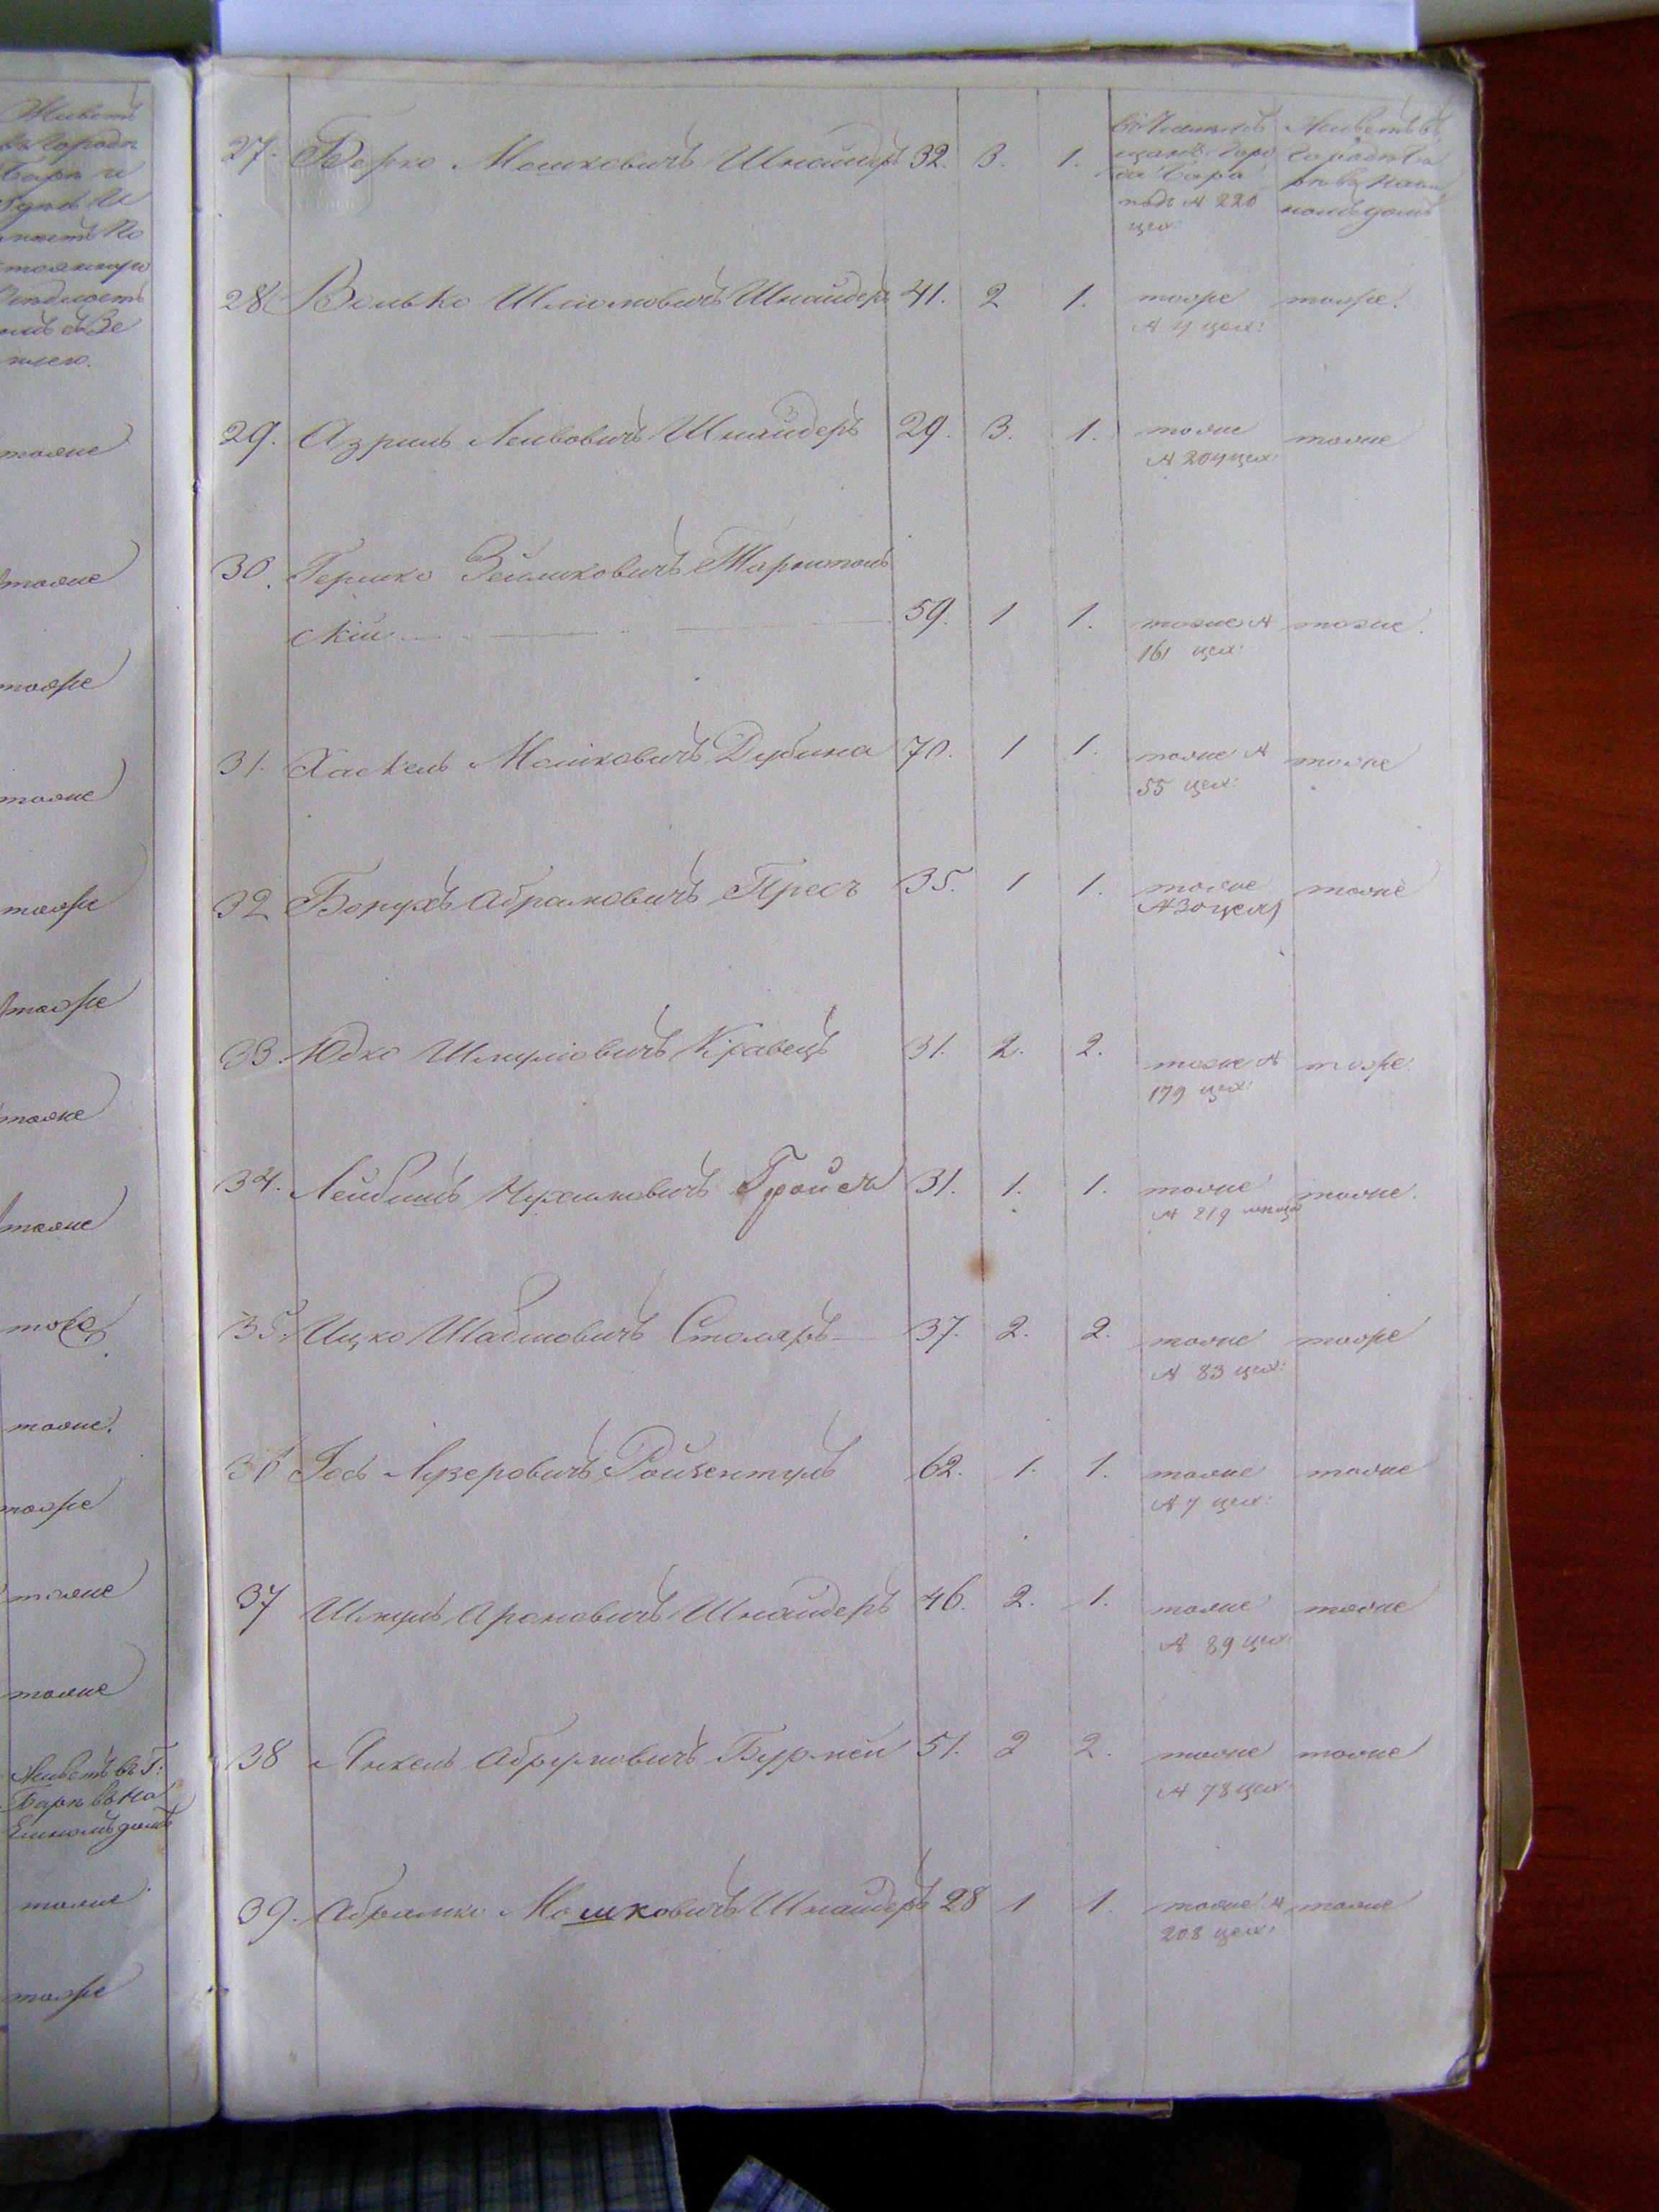 Живетъ
въ Городѣ
Барѣ и
тоже
тоже
тоже
тоже
тоже
тоже
тоже
тоже
тоже
тоже
тоже
тоже
тоже
Живетъ въ Г:
Барѣ въ На
емномъ домѣ
тоже
тоже
27. Берко Мошковичъ Шнайдеръ 32. 3. 1. Живетъ въ
щанъ Горо Городѣ Ба
да Бара рѣ въ Наем
подъ № 220 номъ домѣ
цех:
28 Волько Шлiомовичъ Шнайдеръ 41. 2 1. тоже тоже.
№ 4 цех:
29. Азриль Лейбовичъ Шнайдеръ 29. 3. 1. тоже тоже
№ 204 цех:
30. Гершко Зельмковичъ
скiй 59. 1 1. тоже № тоже.
161 цех:
31. Хаскель Мошковичъ Дубина 70. 1 1. тоже № тоже
55 цех:
32 Борухъ Абрамовичъ Пресъ 35. 1 1. тоже тоже
№ 30 цех)
33. Юдко Шмулiовичъ Кравецъ 31. 2. 2. тоже № тоже.
179 цех:
34. Лейбишъ Нухимовичъ Гройсъ 31. 1. 1. тоже тоже.
№ 219
35. Ицко Шабшовичъ Столяръ 37. 2. 2. тоже тоже
№ 83 цех:
36 Iось Лузеровичъ Ройзентулъ 62. 1. 1. тоже тоже
№ 7 цех:
37 Шмуль Ароновичъ Шнайдеръ 46. 2. 1. тоже тоже
№ 89 цех:
38 Янкель Абрумовичъ 51. 2 2. тоже тоже
№ 78 цех:
39. Абрамко Мошковичъ Шнайдеръ 28 1 1. тоже № тоже
208 цех: